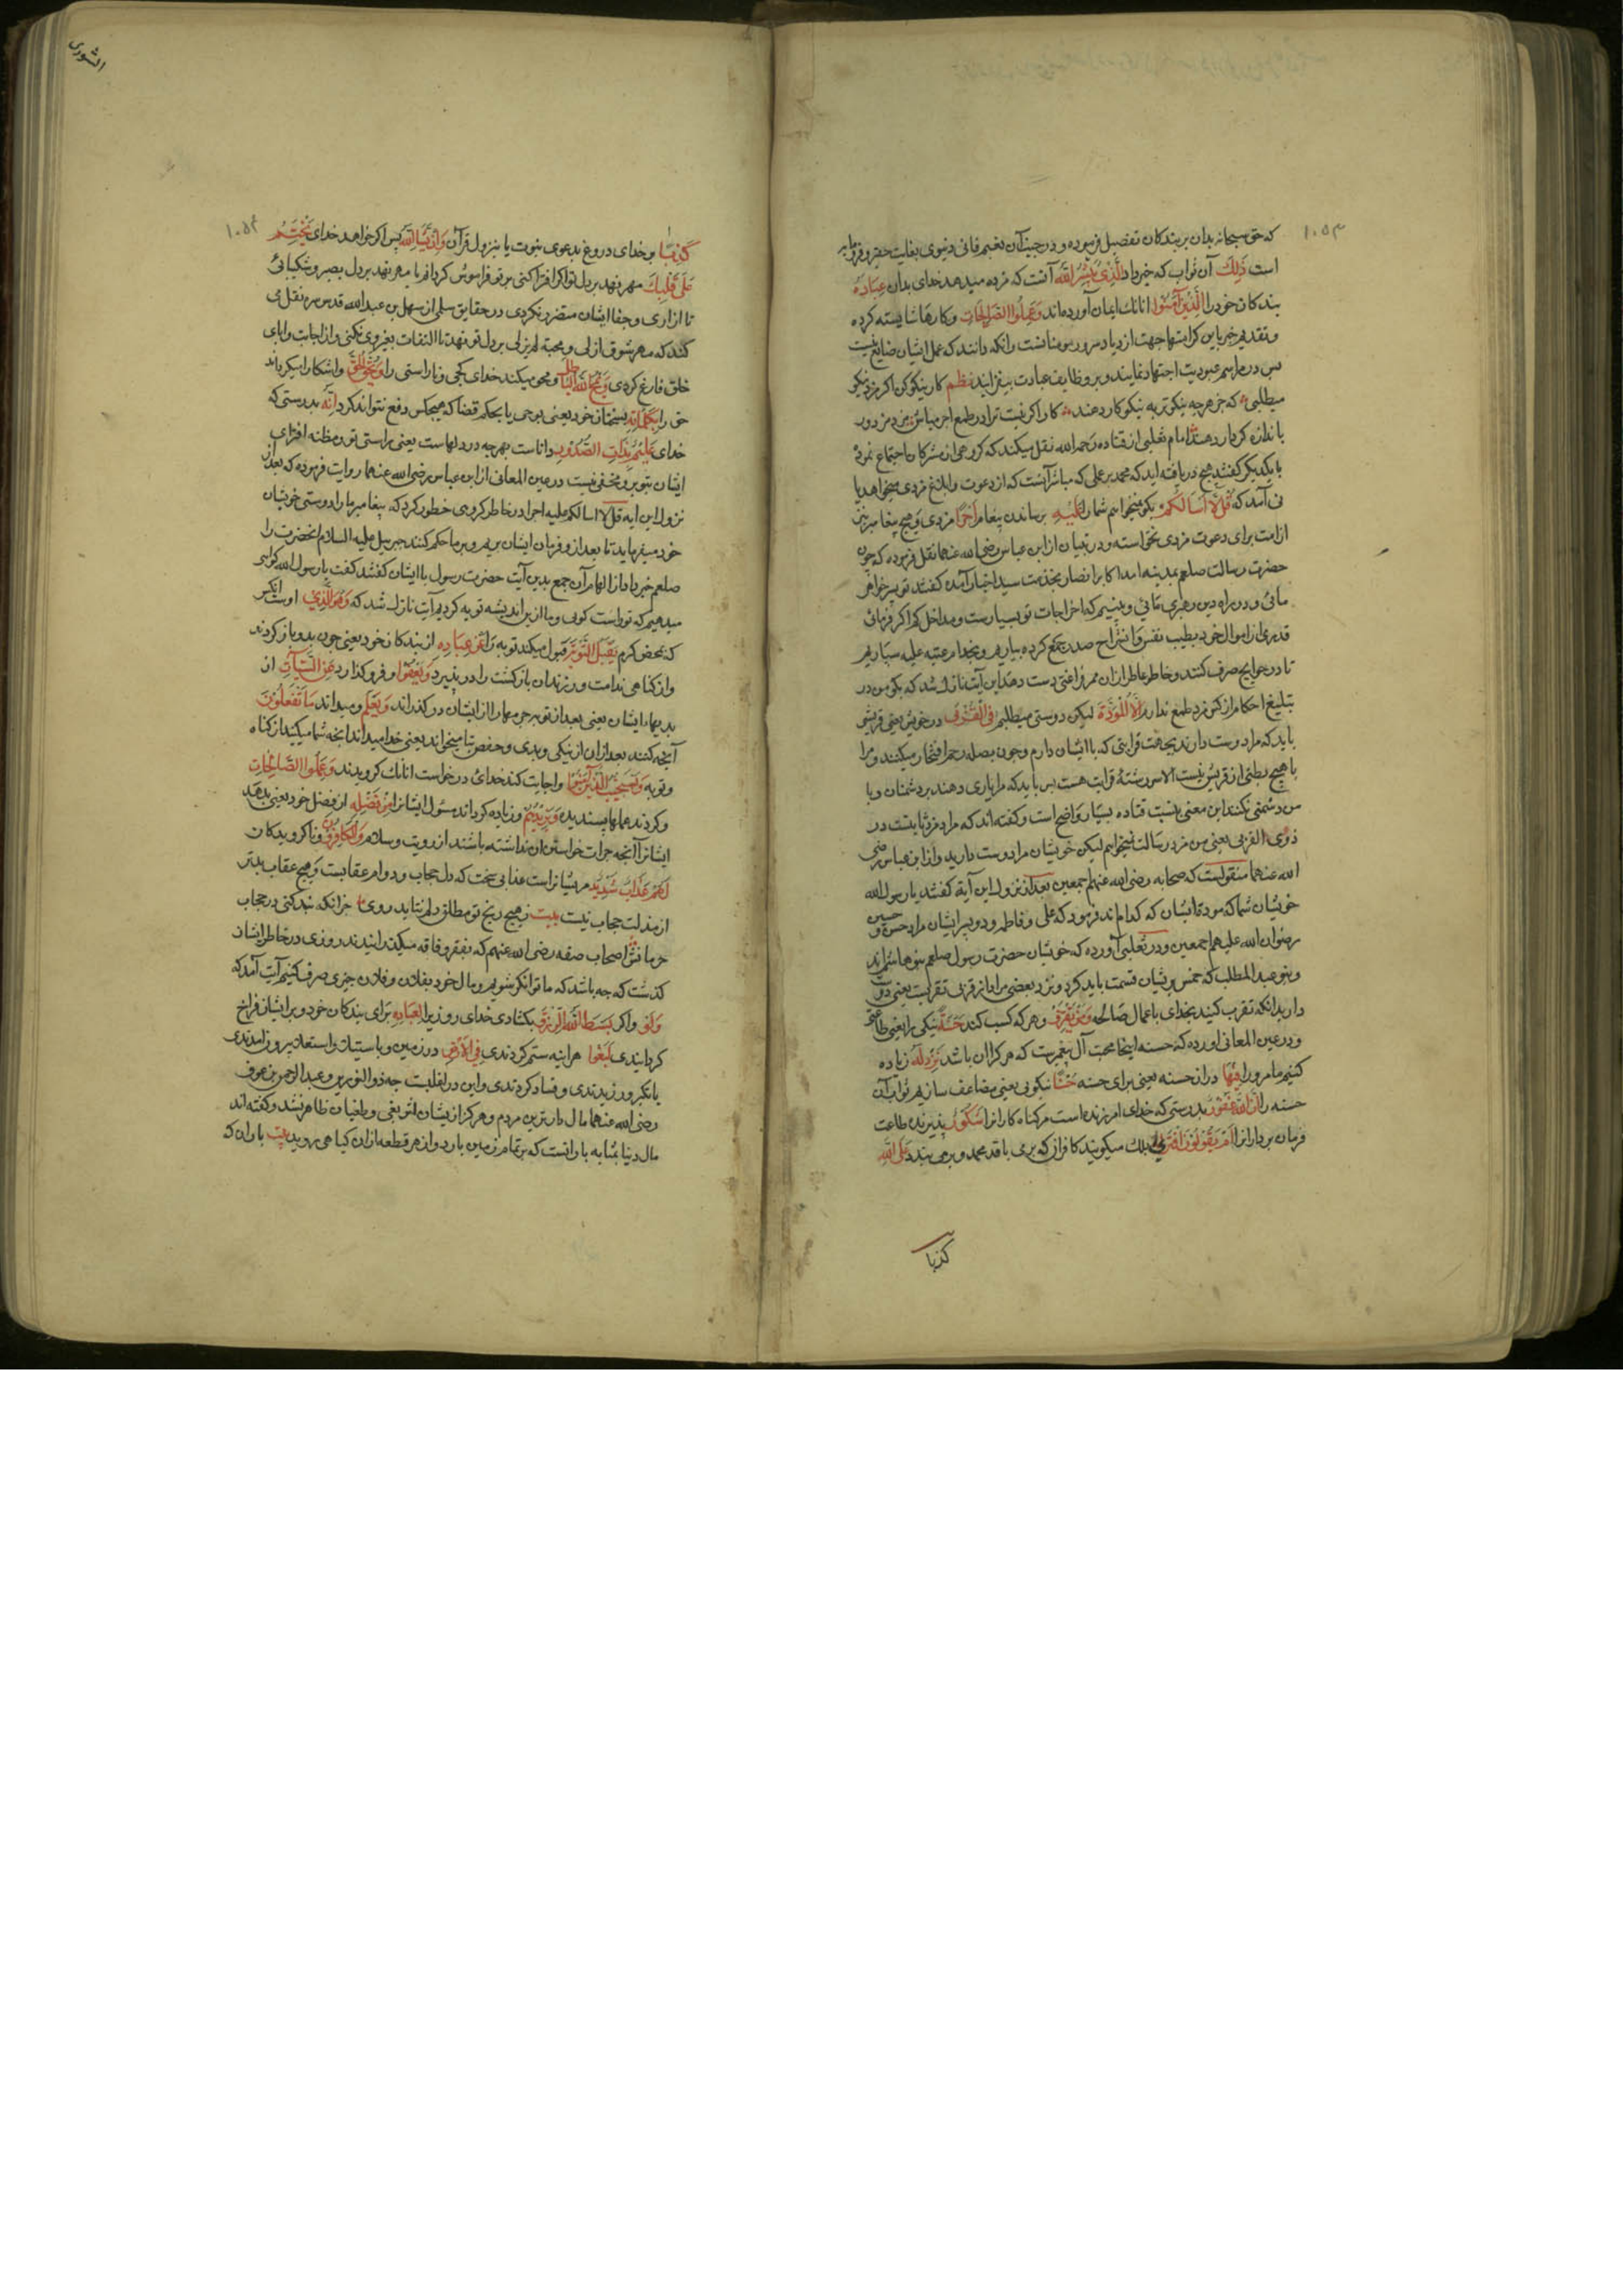 ١٠٥٣
که حق سبحانه بدان بر بندکان تفضیل فرموده و در جنب آن نعیم فانی دنیوی بغایت حقیر و فرومایه
است ذَلِكَ آن ثواب که خبر داد الَّذِي يُبَشِّرُ اللَّهُ آنست که مژده میدهد خدای بدان عِبَادَهُ
بندکان خود را الَّذِينَ آمَنُوا انانک ایمان آورده‌اند وَعَمِلُوا الصَّالِحَاتِ و کارها شایسته کرده
و تقدیم خبر باین کرامتها جهت ازدیاد سرور مومنانست و انکه دانند که عمل ایشان ضایع نیست
پس در مراسم عبودیت اجتهاد نمایند و بر وظایف عبادت بیفزایند نظم کار نیکو کن اکر مزد نیکو
میطلبی که جز هر چه نیکوتر به نیکوکار دهند کار اکر نیست ترا در طمع اجر مباش مزد مزدور
باندازه کردار دهند امام ثعلبی از قتاده رحمه الله نقل میکند که کروهی از مشرکان اجتماع نموده
با یکدیکر کفتند هیچ دریافته‌اید که محمد بر عملی که مباشر آنست که از دعوت و ابلاغ مزدی میخواهد یا
نی آمد که قُل لَّا أَسْأَلُكُمْ بکو نمیخواهم شما را عَلَيْهِ برساندن پیغام أَجْرًا مزدی و هیچ پیغامبر نیز
از امت برای دعوت مزدی نخواسته و در تبیان از ابن عباس رضی الله عنهما نقل فرموده که چون
حضرت رسالت صلعم بمدینه امد اکابر انصار بخدمت سید اخیار آمده کفتند تو پسر خواهر
مائی و در راه دین رهبری مائی و می‌بینیم که اخراجات تو بسیارست و مداخل کم اکر فرمائی
قدری از اموال خود بطیب نفس و انشراح صدر جمع کرده بیاریم و بخدام عتبه علیه سپاریم
تا در حوایج صرف کنند و خاطر عاطر از ان ممر فراغتی دست دهد این آیت نازل شد که بکو من در
تبلیغ احکام از کس مزد طمع ندارم إِلَّا الْمَوَدَّةَ لیکن دوستی میطلبم فِي الْقُرْبَى در خویش یعنی قریش
باید که مرا دوست دارند بجهت قرابتی که با ایشان دارم و چون بصله رحم افتخار میکنند و مرا
با هیچ بطنی از قریش نیست الا سر رشتهٔ قرابت هست پس باید که مرا یاری دهند بر دشمنان و با
من دشمنی نکنند این معنی بنسبت قتاده بسیار واضح است و کفته‌اند که مراد مزد ثابتست در
ذوی القربی یعنی من مزد رسالت نمیخواهم لیکن خویشان مرا دوست دارید و از ابن عباس رضی
الله عنهما منقولست که صحابه رضی الله عنهم اجمعین بعد از نزول این آیة کفتند یا رسول الله
خویشان شما که مودة ایشان که کدام‌اند فرمود که علی و فاطمه و دو پسر ایشان مراد حسن و حسین
رضوان الله علیهم اجمعین و در ثعلبی آورده که خویشان حضرت رسول صلعم بنو هاشم‌اند
و بنو عبد المطلب که خمس بریشان قسمت باید کرد و نزد بعضی مراد از قربی تقربست یعنی دوست
دارید انکه تقرب کنید بخدای باعمال صالحه وَمَن يَقْتَرِفْ و هر که کسب کند حَسَنَةً نیکی را یعنی طاعتی
و در عین المعانی اورده که حسنه اینجا محبت آل پیغمبرست که هر کرا ان باشد نَزِدْ لَهُ زیاده
کنیم ما مر ورا فِيهَا در ان حسنه یعنی برای حسنه حُسْنًا نیکویی یعنی مضاعف سازیم ثواب آن
حسنه را إِنَّ اللَّهَ غَفُورٌ بدرستی که خدای امرزنده است مر کناه کارانرا شَكُورٌ پذیرنده طاعت
فرمان بردارانرا أَمْ يَقُولُونَ افْتَرَى بلک میکویند کافران که بربافد محمد و برمی‌بندد عَلَى اللَّهِ
کذبا
الشوری
١٠٥٤
كَذِبًا بر خدای دروغ بدعوی نبوت یا بنزول قرآن فَإِن يَشَإِ اللَّهُ پس اکر خواهد خدای يَخْتِمْ
عَلَى قَلْبِكَ مهر نهد بر دل تو اکر افترا کنی بر تو فراموش کردانم یا مهر نهد بر دل بصبر و شکیبائی
تا از ازاری و جفا ایشان متضرر نکردی در حقایق سلمی از سهل بن عبد الله قدس سره نقل می
کند که مهر شوق ازلی و محبة لم یزلی بر دل تو نهد تا التفات بغیر وی نکنی و از اجابت و ابای
خلق فارغ کردی وَيَمْحُ اللَّهُ الْبَاطِلَ و محو میکند خدای کجی و ناراستی را وَيُحِقُّ الْحَقَّ و اشکارا میکرداند
حق را بِكَلِمَاتِهِ بسخنان خود یعنی بوحی یا بحکم قضا که هیچکس دفع نتواند کرد إِنَّهُ بدرستی که
خدای عَلِيمٌ بِذَاتِ الصُّدُورِ داناست بهرچه در دلهاست یعنی براستی تو و مظنه افترای
ایشان بتو برو مخفی نیست در عین المعانی از ابن عباس رضی الله عنهما روایت فرموده که بعد از
نزول این ایه قل لا اسالکم علیه اجرا در خاطر کروهی خطور کرد که پیغامبر ما را دوستی خویشان
خود میفرماید تا بعد ازو فرمان ایشان بریم و بر ما حکم کنند جبرییل علیه السلام انحضرت را
صلعم خبر داد از اتهام آن جمع بدین آیت حضرت رسول با ایشان کفتند کفت یا رسول الله کواهی
میدهیم که تو راست کویی و ما ازین اندیشه توبه کردیم آیت نازل شد که وَهُوَ الَّذِي اوست انکس
که بمحض کرم يَقْبَلُ التَّوْبَةَ قبول میکند توبه را عَنْ عِبَادِهِ از بندکان خود یعنی چون بدو باز کردند
و از کناهی ندامت ورزند ان بازکشت را در پذیرد وَيَعْفُوا و فرو کذارد عَنِ السَّيِّئَاتِ از
بدیهاء ایشان یعنی بعد از توبه جرمها را از ایشان در کذراند وَيَعْلَمُ و میداند مَا تَفْعَلُونَ
آنچه کنند بعد ازان از نیکی و بدی و حفص بتا میخواند یعنی خدا میداند انچه شما میکنید از کناه
و توبه وَيَسْتَجِيبُ الَّذِينَ آمَنُوا و اجابت کند خدای درخواست انانک کرویدند وَعَمِلُوا الصَّالِحَاتِ
و کردند عملها پسندیده وَيَزِيدُهُم و زیاده کرداند مسؤل ایشانرا مِّن فَضْلِهِ از فضل خود یعنی بدهد
ایشانرا آنچه جرات خواستن ان نداشته باشند از رویت و سلام وَالْكَافِرُونَ و ناکرویدکان
لَهُمْ عَذَابٌ شَدِيدٌ مریشانراست عذابی سخت که دل حجاب و دوام عقابست و هیچ عقاب بدتر
از مذلت حجاب نیست بیت ز هیچ رنج تو مطلق دلم نتابد روی جز انکه بند کنی در حجاب
حرمانش اصحاب صفه رضی الله عنهم که بفقر و فاقه میکذرانیدند روزی در خاطر ایشان
کذشت که چه باشد که ما توانکر شویم و مال خود بفلان و فلان چیزی صرف کنیم آیت آمد که
وَلَوْ و اکر بَسَطَ اللَّهُ الرِّزْقَ بکشادی خدای روزی را لِعِبَادِهِ برای بندکان خود و بر ایشان فراخ
کردانیدی لَبَغَوْا هراینه ستم کردندی فِي الْأَرْضِ در زمین و باستیلا و استعلا بیرون امدندی
یا تکبر ورزیدندی و فساد کردندی و این در اغلبست چه ذوالنورین و عبد الرحمن بن عوف
رضی الله عنهما مال دارترین مردم و هرکز از یشان اثر بغی و طغیان ظاهر نشد و کفته‌اند
مال دنیا بمثابه بارانست که بر تمام زمین بارد و از هر قطعه از ان کیاهی روید بیت باران که